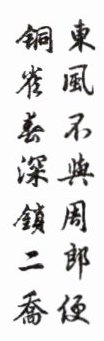 東風不與周郎便
銅雀春深鎖二喬